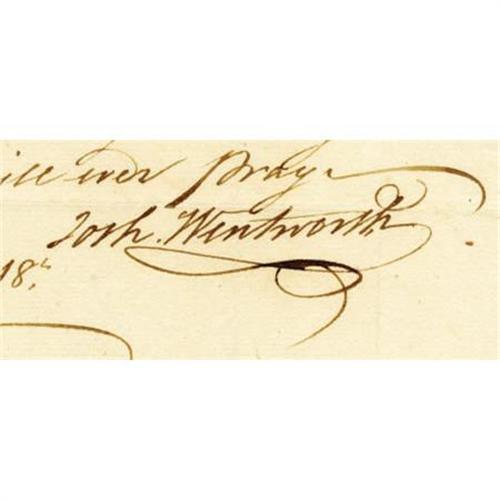 ill ever Pray
Josh. Wentworth
18th